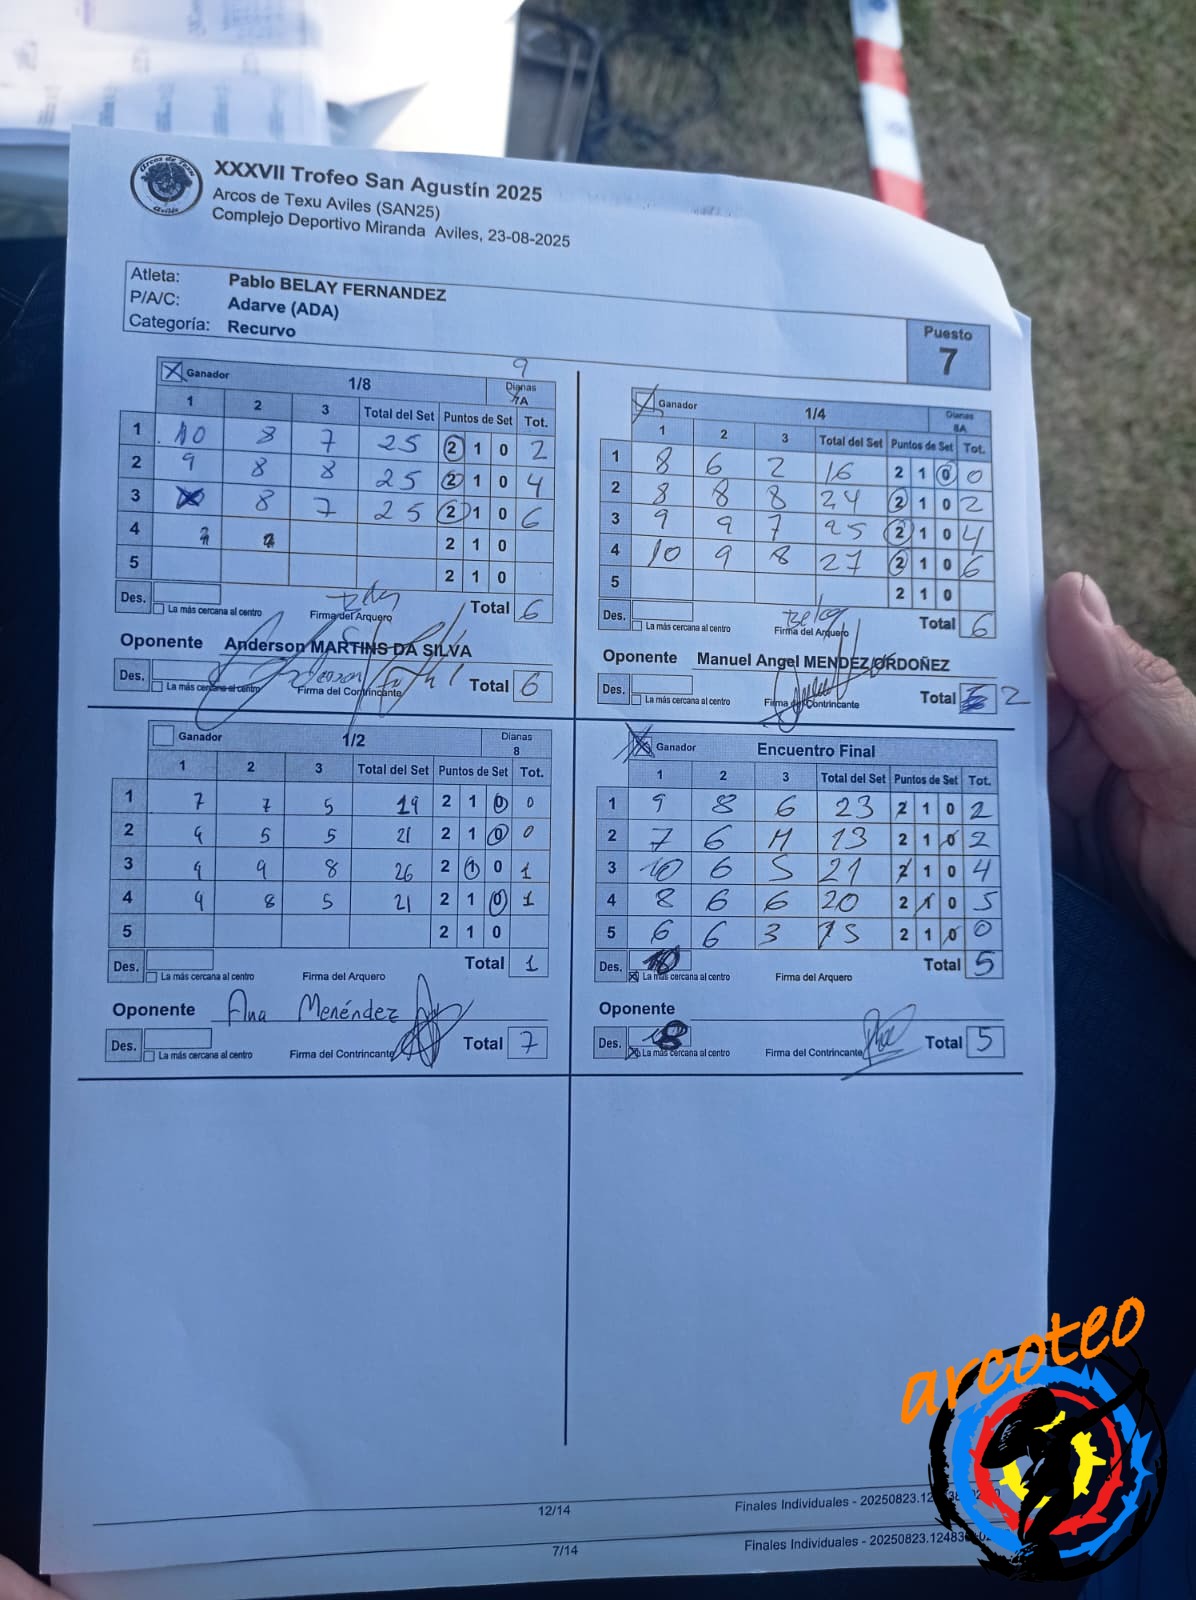 XXXVII Trofeo San Agustín 2025
Arcos de Texu Aviles (SAN25)
Complejo Deportivo Miranda Aviles, 23-08-2025
Atleta: Pablo BELAY FERNANDEZ
P/A/C: Adarve (ADA)
Categoría: Recurvo
Puesto
7
9
Ganador 1/8 Dianas
1 2 3 Total del Set Puntos de Set Tot.
1 10 8 7 25 2 1 0 2
2 9 8 8 25 2 1 0 4
3 8 7 25 2 1 0 6
4 2 1 0
5 2 1 0
Des. La más cercana al centro Firma del Arquero Total 6
Oponente Anderson MARTINS DA SILVA
Des. La más cercana al centro Firma del Contrincante Total 6
Ganador 1/4 Dianas
8A
1 2 3 Total del Set Puntos de Set Tot.
1 8 6 2 16 2 1 0 0
2 8 8 8 24 2 1 0 2
3 9 9 7 25 2 1 0 4
4 10 9 8 27 2 1 0 6
5 2 1 0
Des. La más cercana al centro Belay Firma del Arquero Total 6
Oponente Manuel Angel MENDEZ ORDOÑEZ
Des. La más cercana al centro Firma del Contrincante Total 2
Ganador 1/2 Dianas
8
1 2 3 Total del Set Puntos de Set Tot.
1 7 7 5 19 2 1 0 0
2 5 5 21 2 1 0 0
3 9 9 8 26 2 1 0 1
4 8 5 21 2 1 0 1
5 2 1 0
Des. La más cercana al centro Firma del Arquero Total 1
Oponente Ana Menéndez
Des. La más cercana al centro Firma del Contrincante Total 7
Ganador Encuentro Final
1 2 3 Total del Set Puntos de Set Tot.
1 9 8 6 23 2 1 0 2
2 7 6 M 13 2 1 0 2
3 10 6 5 21 2 1 0 4
4 8 6 6 20 2 1 0 5
5 6 6 3 15 2 1 0 0
Des. La más cercana al centro Firma del Arquero Total 5
Oponente
Des. La más cercana al centro Firma del Contrincante Total 5
12/14 Finales Individuales - 20250823.12
7/14 Finales Individuales - 20250823.12483
arcoteo